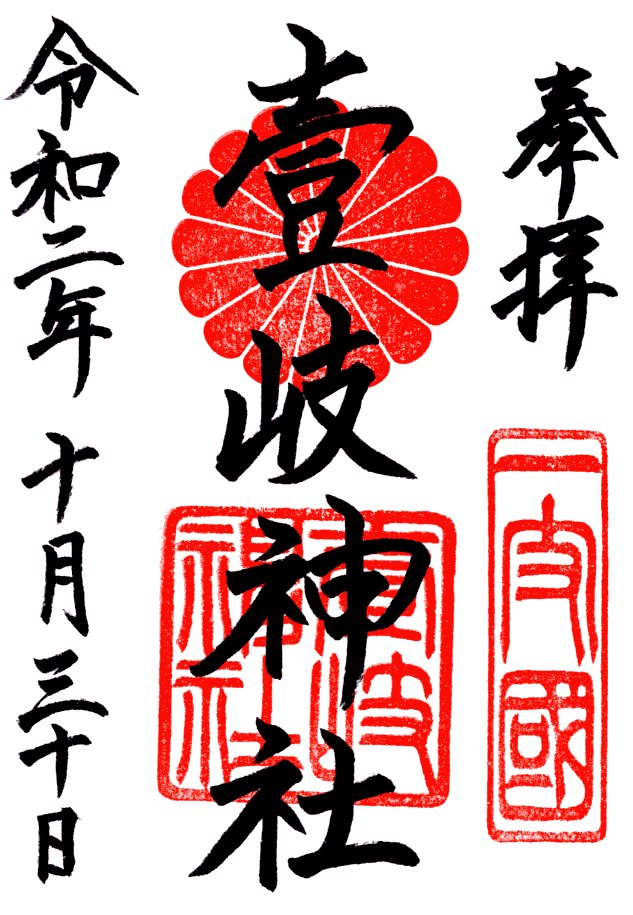 奉拝
一支國
壹岐神社
壹岐
神社
令和二年 十月三十日